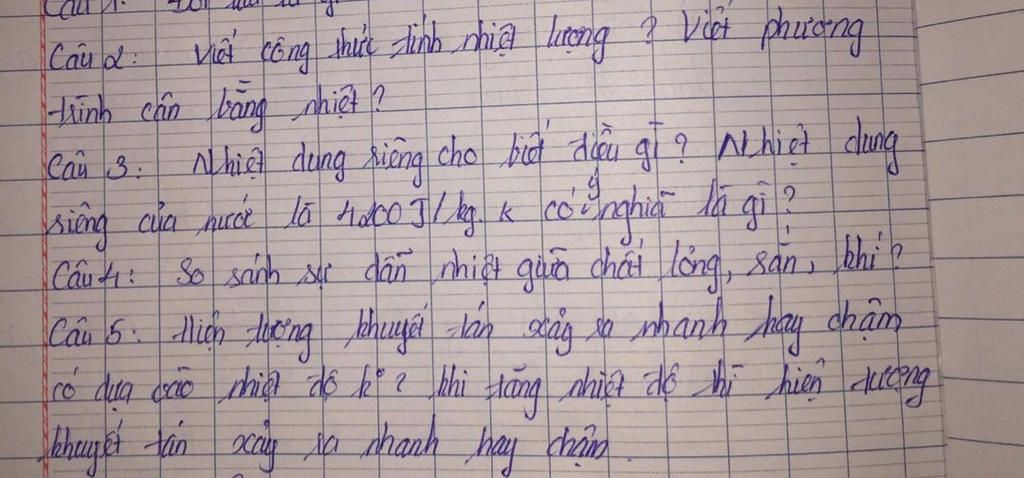 Câu 2: Viết công thức tính nhiệt lượng? Viết phương
trình cân bằng nhiệt?
Câu 3: Nhiệt dung riêng cho biết điều gì? Nhiệt dung
riêng của nước là 4200 J/kg.k có ý nghĩa là gì?
Câu 4: So sánh sự dẫn nhiệt giữa chất lỏng, rắn, khí?
Câu 5: Hiện tượng khuyết tán xảy ra nhanh hay chậm
có dựa vào nhiệt độ k°? khi tăng nhiệt độ thì hiện tượng
khuyết tán xảy ra nhanh hay chậm.